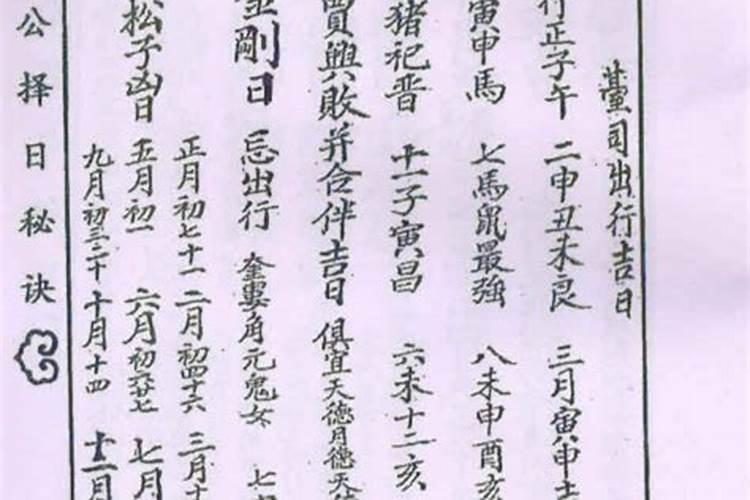 臺司出行吉日
行正子午 二申丑未良 三月寅申
寅申馬 七馬鼠最強 八未申酉亥
猪祀晋 十一子寅昌 六未十二亥
買興敗并合伴吉日 俱宜天德月德天
金剛日 忌出行 奎婁角亢鬼女 七
正月初七十一 二月初四十六 三月十
松子凶日 五月初一 六月初六廿七 七月
九月初三二十 十月十四 十一月
公择日秘诀